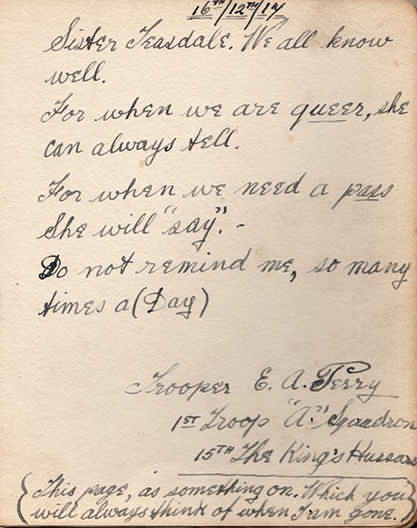 16TH/12TH/17
Sister Teasdale. We all know
well.
For when we are queer, she
can always tell.
For when we need a pass
She will "say". -
Do not remind me, so many
times a (Day)
Trooper E. A. Perry
1ST Troop "A." Squadron
15TH The King's Hussars
(This page, as something on. Which you
will always think of when I'm gone.)